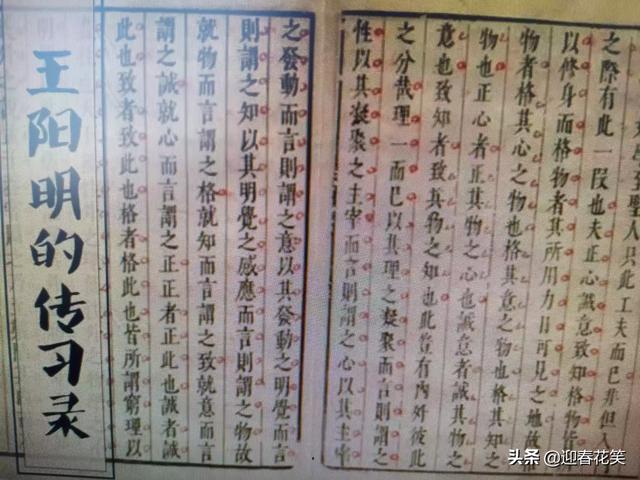 至聖人只此工夫而已非但入
之際有此一段也夫正心誠意致知格物皆
以修身而格物者其所用力日可見之地故
物者格其心之物也格其意之物也格其知之
物也正心者正其物之心也誠意者誠其物之
意也致知者致其物之知也此豈有內外彼此
之分哉理一而已以其理之凝聚而言則謂之
性以其凝聚之主宰而言則謂之心以其主宰
之發動而言則謂之意以其發動之明覺而言
則謂之知以其明覺之感應而言則謂之物故
就物而言謂之格就知而言謂之致就意而言
謂之誠就心而言謂之正正者正此也誠者誠
此也致者致此也格者格此也皆所謂窮理以
王阳明的传习录
头条 @迎春花笑